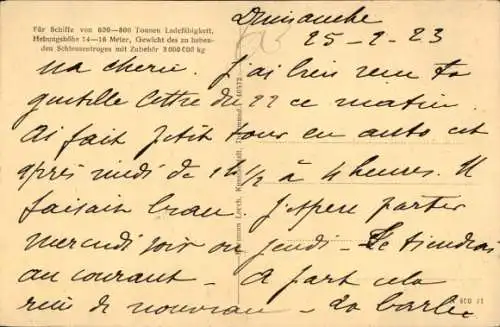 Für Schiffe von 600—800 Tonnen Ladefähigkeit,
Hebungshöhe 14—16 Meter, Gewicht des zu heben-
den Schleusentroges mit Zubehör 3 000 000 kg
Dimanche
25-2-23
Ma cherie. J'ai bien reçu ta
gentille lettre du 22 ce matin.
Ai fait petit tour en auto cet
après midi de 1h 1/2 à 4 heures. Il
faisait beau. J'espère partir
mercredi soir ou jeudi - Te tiendrai
au courant - A part cela
rien de nouveau -
Hermann Lorch, Kunstanstalt, Dortmund